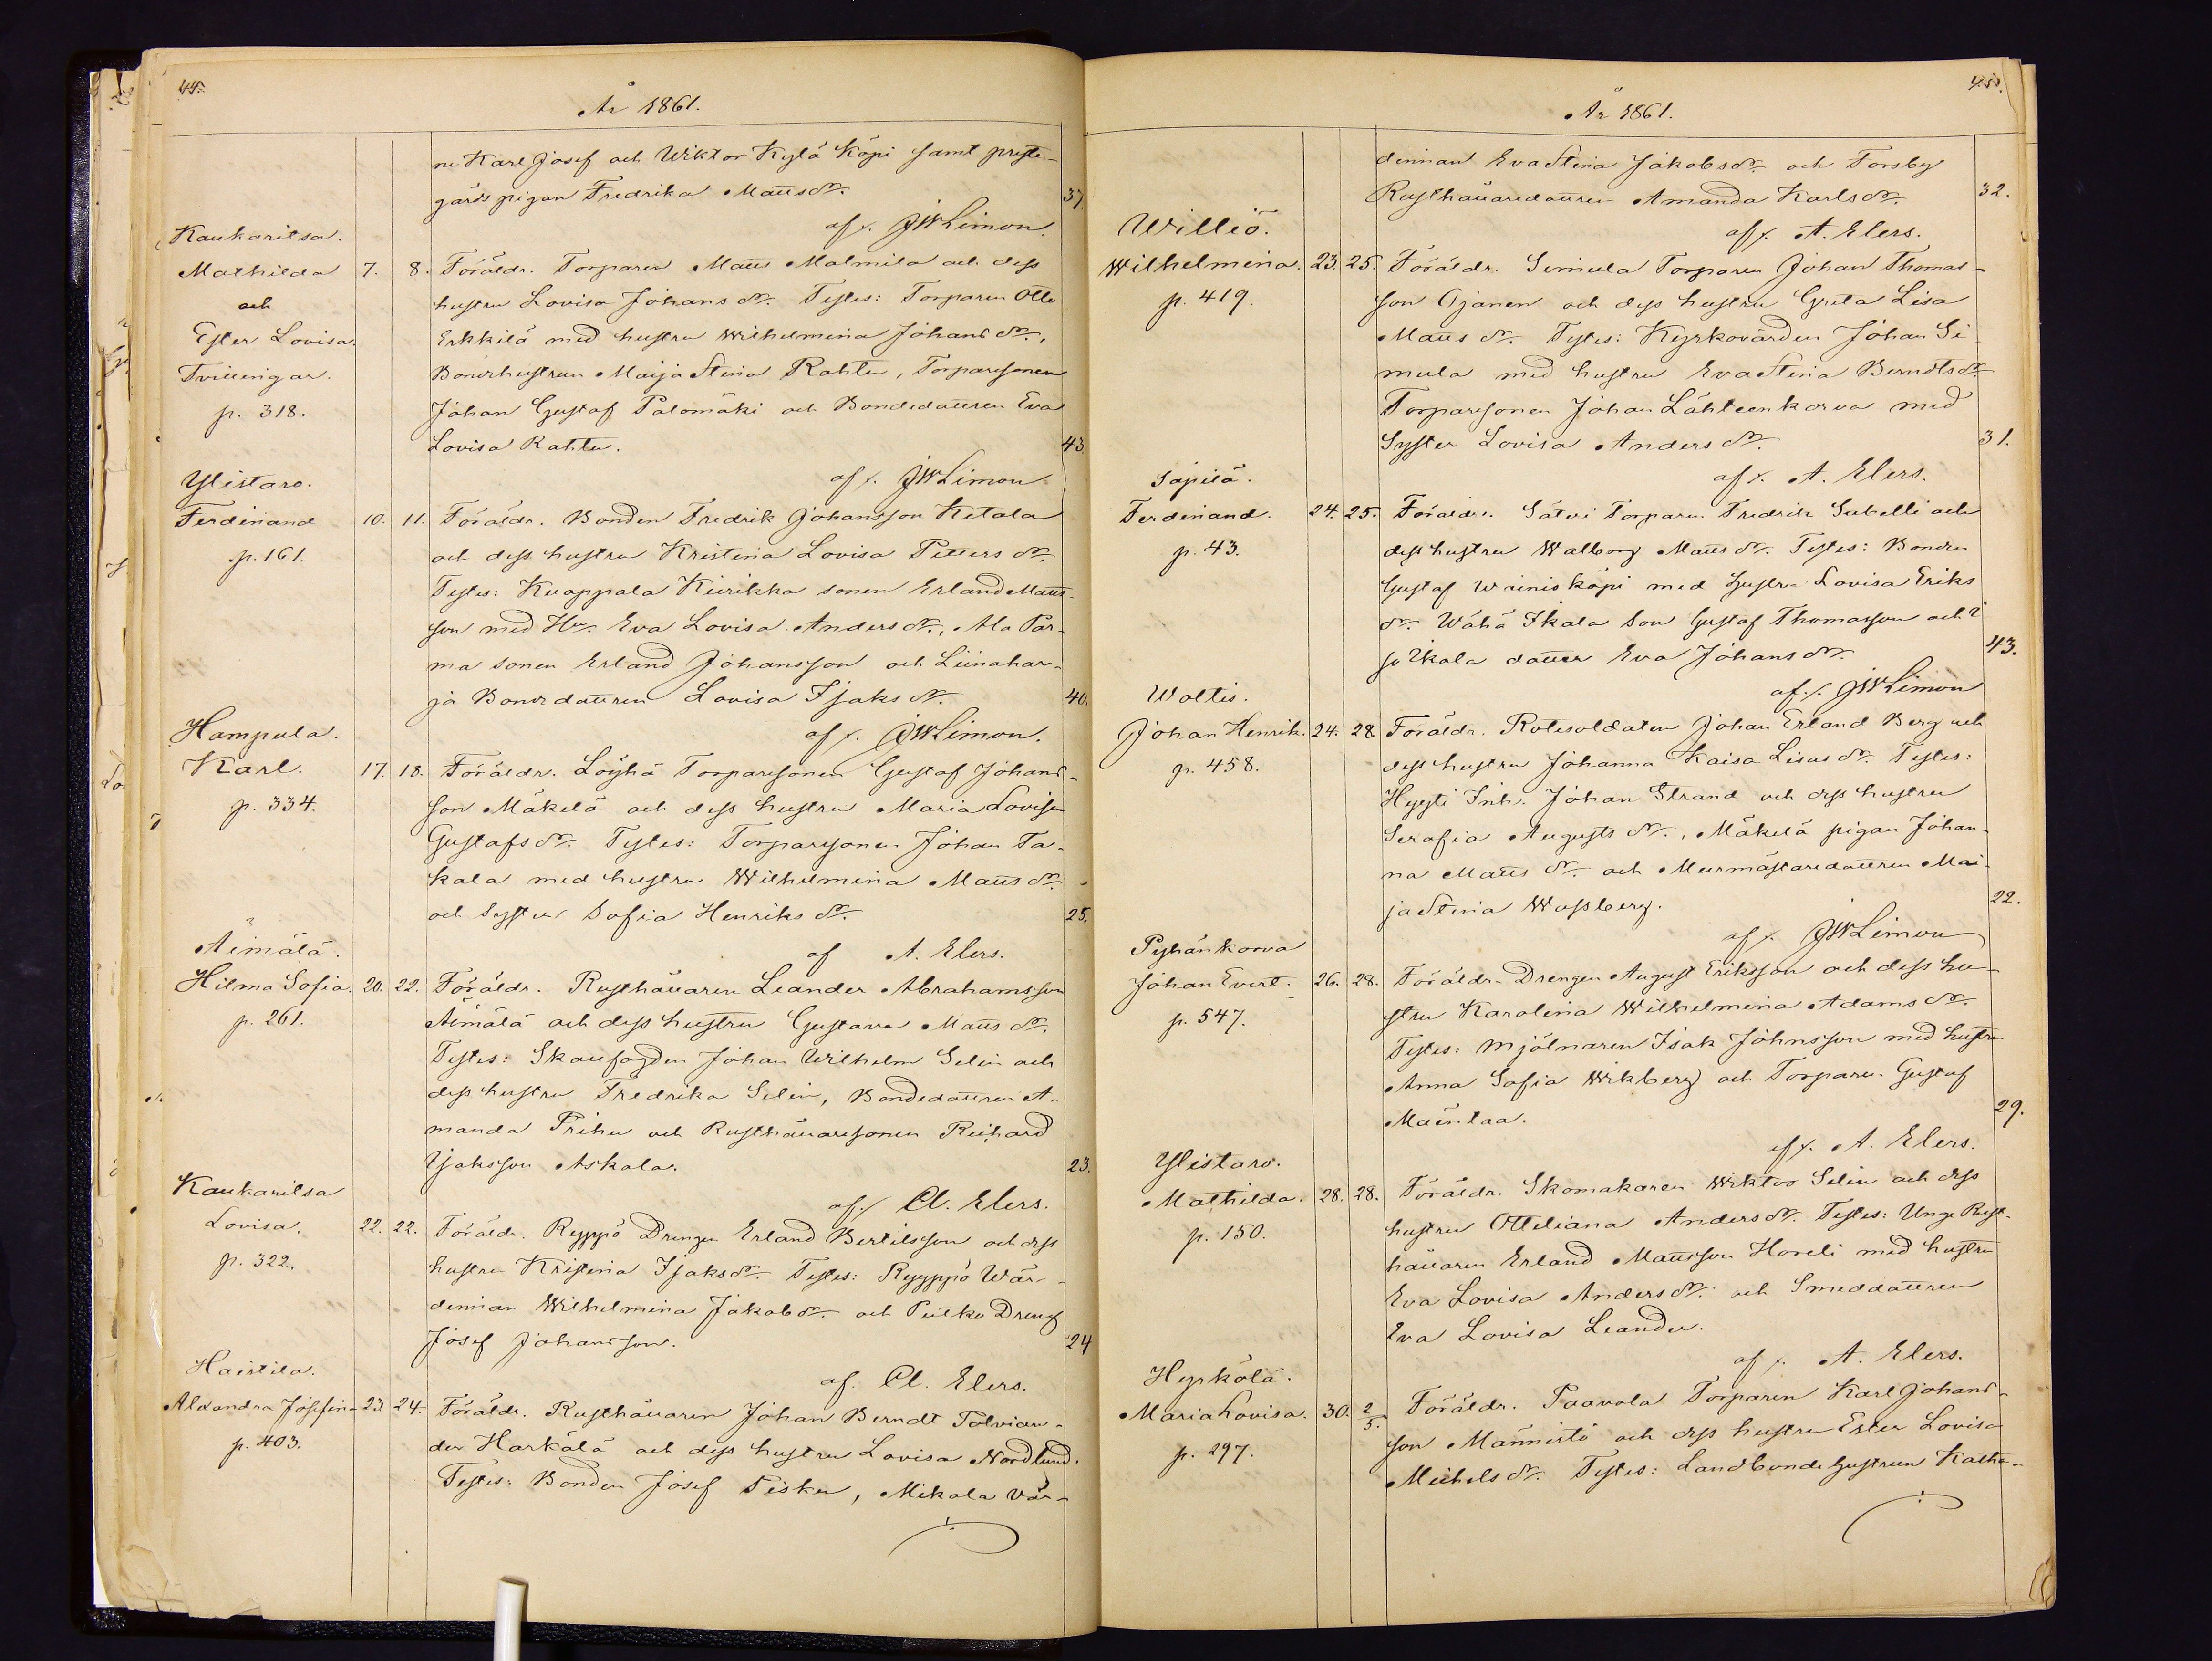 44.
År 1861.
ne Karl Josef och Wiktor Kylä Köpi samt preste-
gårds pigan Fredrika Mattsdr.
37.
af /. JW Limon.
Kaukaritsa.
Mathilda 7. 8. Föräldr. Torparen Matts Malmila och dess
och hustru Lovisa Johansdr. Testes: Torparen Otto
Ester Lovisa. Erkkilä med hustru Wilhelmina Johansdr.,
Tvillingar. Bondhustrun Maija Stina Rahtu, Torparesonen
p. 318. Johan Gustaf Palomäki och Bondedottren Eva
Lovisa Rahtu. 43.
Ylistaro. af /. JW Limon.
Ferdinand 10. 11. Föräldr. Bonden Fredrik Johansson Ketala
p. 161. och dess hustru Kristina Lovisa Petters dr.
Testes: Knappala Kiirikka sonen Erland Matts-
son med Hu. Eva Lovisa Anders dr., Ala Par-
ma sonen Erland Johansson och Liinahar-
ja Bondedottren Lovisa Isaks dr. 40.
Hampula. af /. JW Limon.
Karl. 17. 18. Föräldr. Löyhä Torparesonen Gustaf Johans-
p. 334. son Mäkelä och dess hustru Maria Lovisa
Gustafs dr. Testes: Torparesonen Johan Ta-
kala med hustru Wilhelmina Matts dr.
och Syster Sofia Henriks dr. 25.
Äimälä. af A. Elers.
Hilma Sofia. 20. 22. Föräldr. Rusthållaren Leander Abrahamsson
p. 261. Äimälä och dess hustru Gustava Matts dr.
Testes: Skoufogden Johan Wilhelm Selin och
dess hustru Fredrika Selin, Bondedottren A-
manda Prihu och Rusthållaresonen Richard
Isaksson Askala. 23.
Kaukaritsa af /. A. Elers.
Lovisa. 22. 22. Föräldr. Ryppö Drengen Erland Bertilsson och dess
p. 322. hustru Kristina Isaks dr. Testes: Ryyppö Wär-
dinnan Wilhelmina Jakobs dr. och Putko Dreng
Josef Johansson. 24
Haistila. af. A. Elers.
Alexandra Josefina 23. 24. Föräldr. Rusthållaren Johan Berndt Polvian-
p. 403. der Harkälä och dess hustru Lovisa Nordlund.
Testes: Bonden Josef Pisku, Mikola Vär-
45.
År 1861.
dinnan Eva Stina Jakobs dr. och Forsby
Rusthållaredottren Amanda Karls dr. 32.
Williö. af /. A. Elers.
Wilhelmina. 23. 25. Föräldr. Simula Torparen Johan Thomas-
p. 419. son Ojanen och dess hustru Greta Lisa
Matts dr. Testes: Kyrkovärden Johan Si-
mula med hustru Eva Stina Berndts dr.
Torparesonen Johan Lähteenkorva med
Syster Lovisa Anders dr. 31.
Sapilä. af /. A. Elers.
Ferdinand. 24. 25. Föräldr. Säteri Torparen Fredrik Subelli och
p. 43. dess hustru Walborg Matts dr. Testes: Bonden
Gustaf Wainisköpi med hustru Lovisa Eriks
dr. Wähä Ikala Son Gustaf Thomasson och I
so Ikala dotter Eva Johans dr. 43.
Woltis. af /. JW Limon
Johan Henrik. 24. 28 Föräldr. Rotesoldaten Johan Erland Berg och
p. 458. dess hustru Johanna Kaisa Lisas dr. Testes:
Hyyti Inh. Johan Strand och dess hustru
Serafia Augusts dr., Mäkelä pigan Johan-
na Matts dr. och Murmästaredottren Mai-
ja Stina Wassberg. 22.
Pyhänkorva af /. JW Limon
Johan Evert. 26. 28. Föräldr. Drengen August Eriksson och dess hu-
p. 547. stru Karolina Wilhelmina Adams dr.
Testes: Mjölnaren Isak Johnsson med hustru
Anna Sofia Wikberg och Torparen Gustaf
Mäentaa. 29.
Ylistaro. af /. A. Elers.
Mathilda. 28. 28. Föräldr. Skomakaren Wiktor Selin och dess
p. 150. hustru Otteliana Anders dr. Testes: Unge Rust-
hållaren Erland Mattsson Horeli med hustru
Eva Lovisa Anders dr. och Smeddottren
Eva Lovisa Leander.
Hyrkölä. af /. A. Elers.
Maria Lovisa. 30. 2/5. Föräldr. Paavola Torparen Karl Johans-
p. 297. son Männistö och dess hustru Ester Lovisa
Michels dr. Testes: Landbonde hustrun Katha-